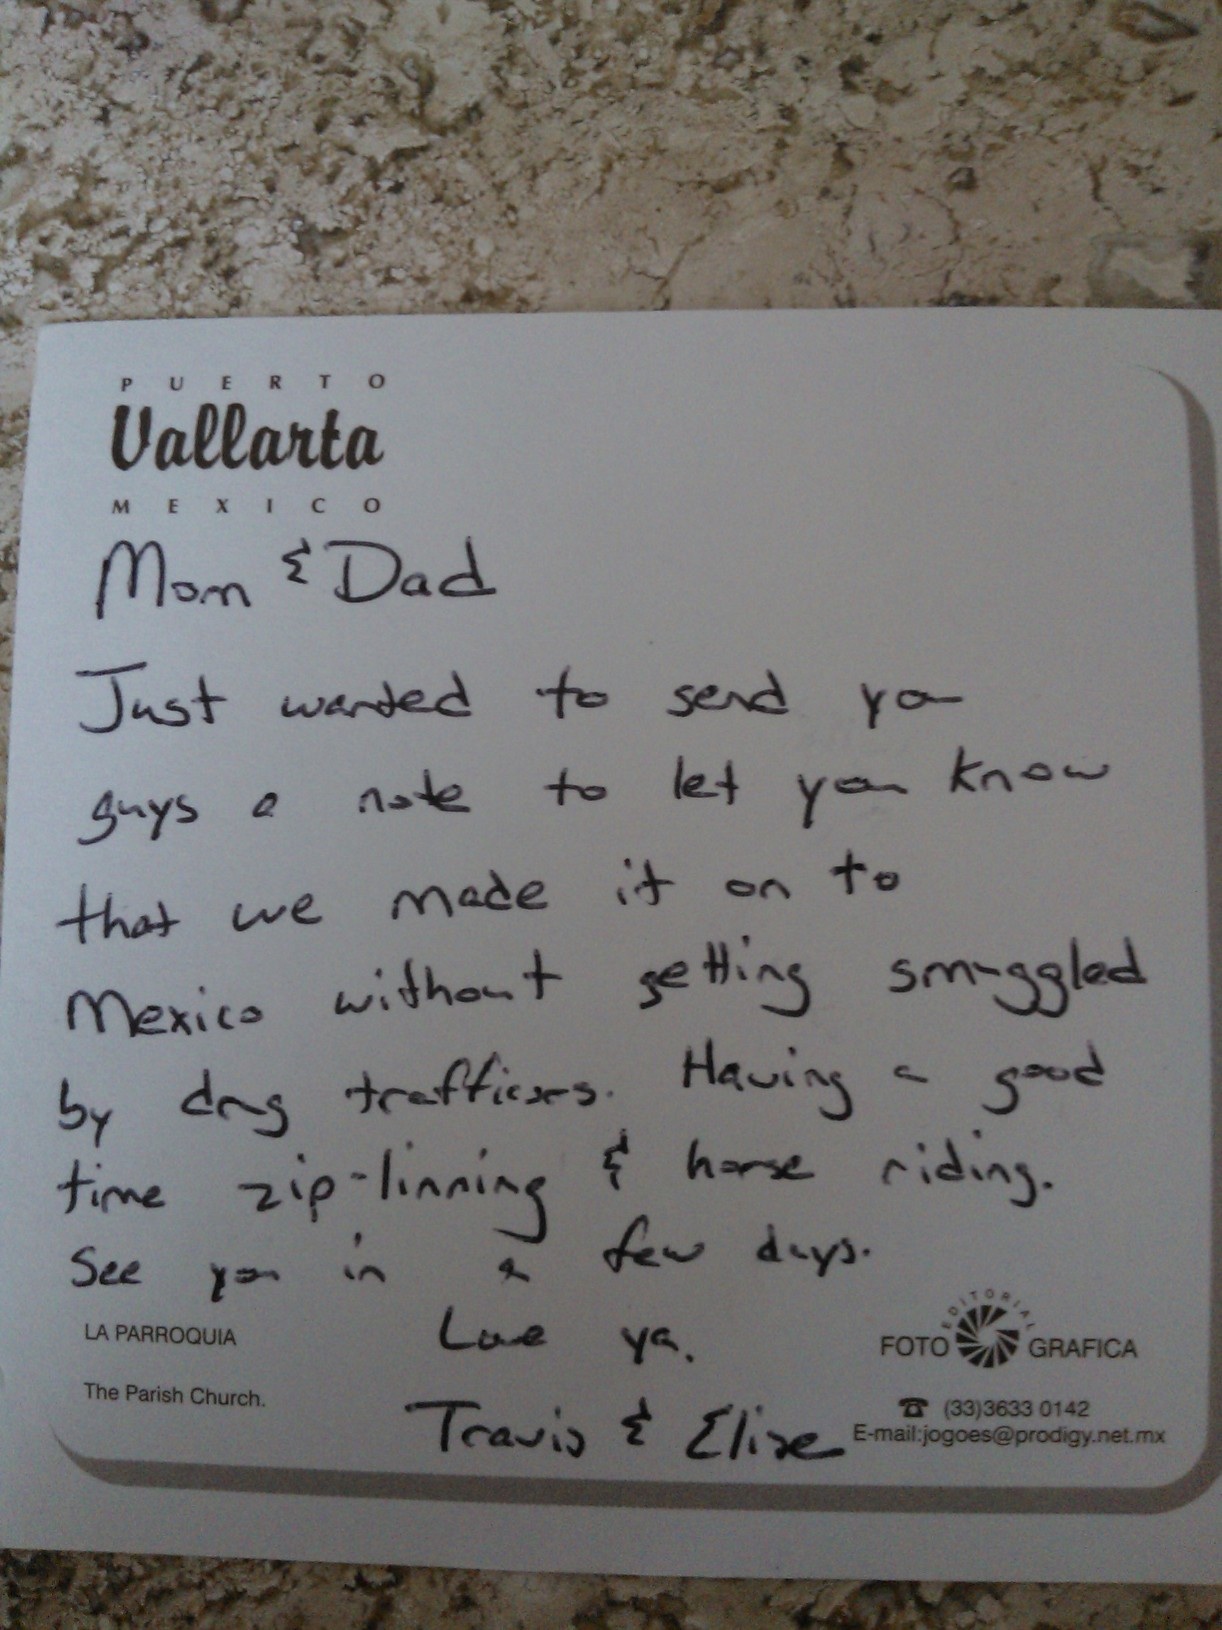 PUERTO
Vallarta
MEXICO
Mom & Dad
Just wanted to send you
guys a note to let you know
that we made it on to
Mexico without getting smuggled
by drug trafficers. Having a good
time zip-linning & horse riding.
See you in a few days.
Love ya.
Travis & Elise
LA PARROQUIA
The Parish Church.
EDITORIAL
FOTO GRAFICA
☎ (33)3633 0142
E-mail:jogoes@prodigy.net.mx